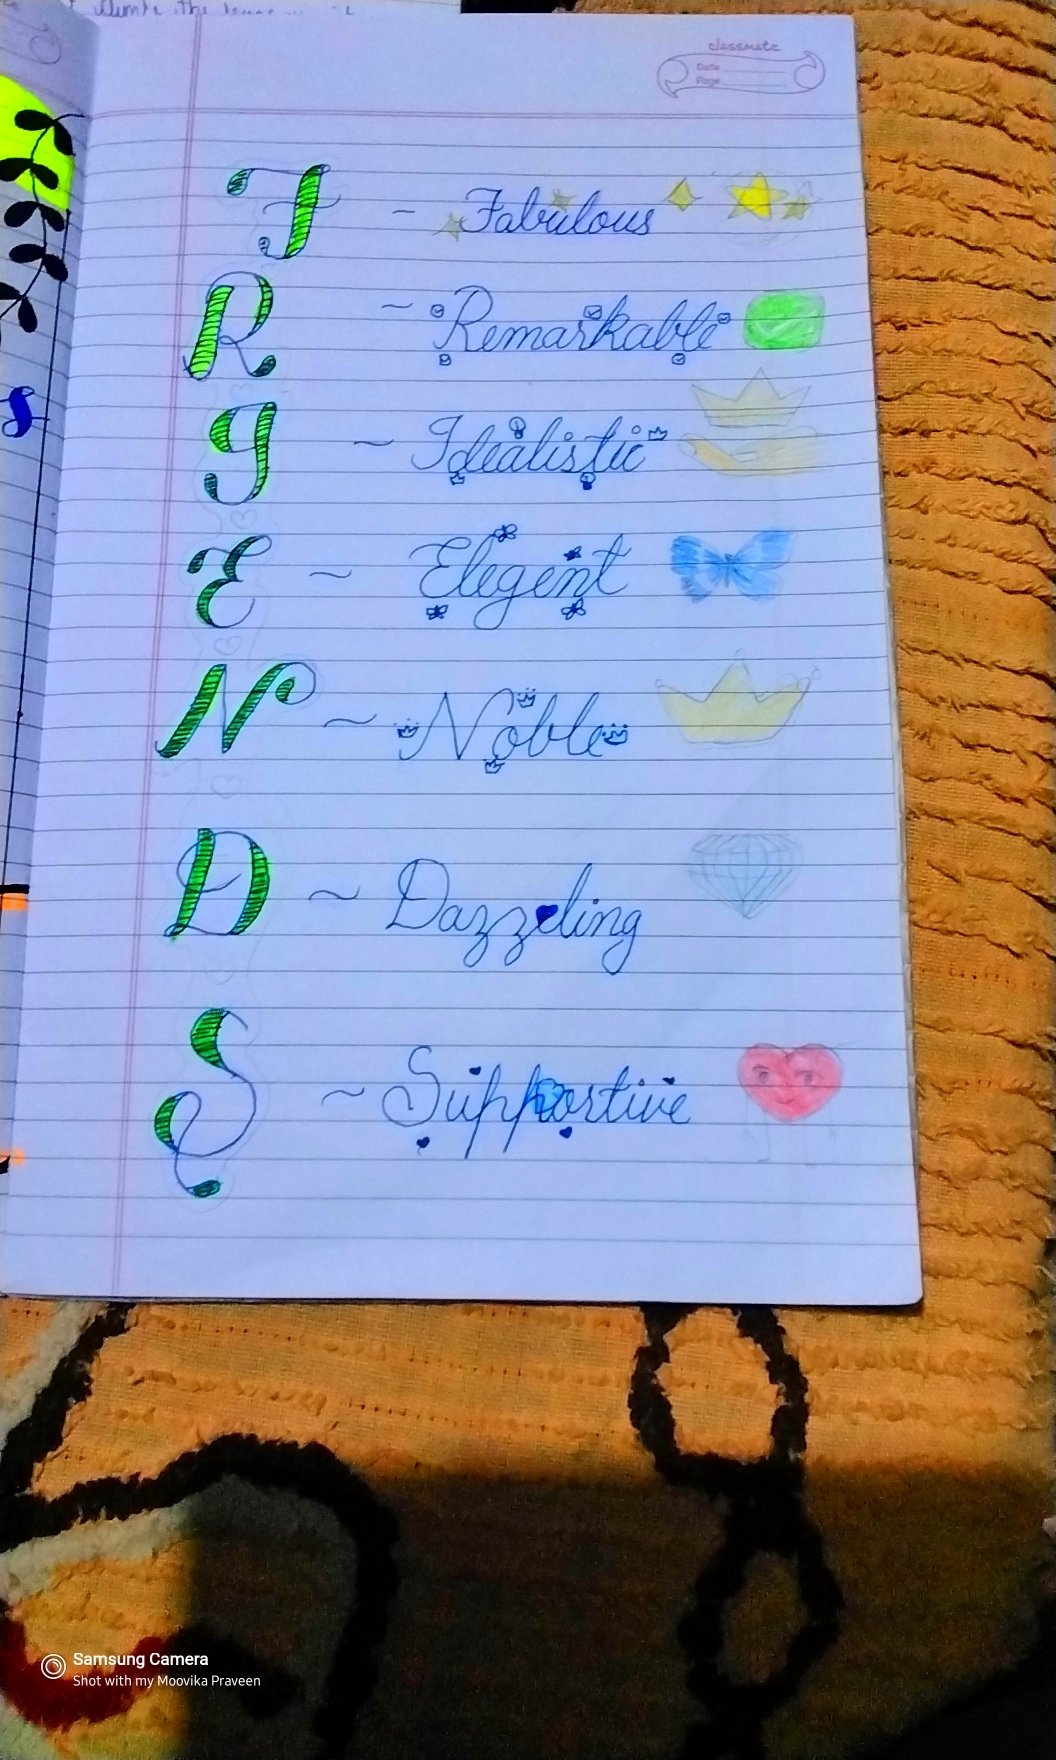 classmate
Date
Page
F - Fabulous
R ~ Remarkable
I ~ Idealistic
E ~ Elegent
N ~ Noble
D ~ Dazzling
S ~ Supportive
s
Samsung Camera
Shot with my Moovika Praveen